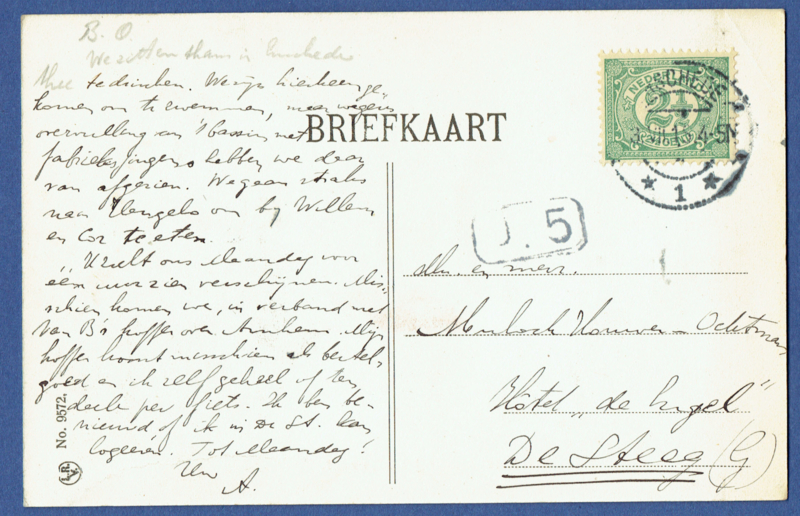 B. O.
We zitten thans in Enschede
thee te drinken. We zijn hierheen ge-
komen om te zwemmen, maar wegens
overvulling van 't bassin met
fabrieksjongens hebben we daar
van afgezien. We gaan straks
naar Hengelo om bij Willem
en Cor te eten.
U zult ons Maandag voor
één uur zien verschijnen. Mis-
schien komen we, in verband met
van B's koffer over Arnhem. Mijn
koffer komt misschien als bestel-
goed en ik zelf geheel of ten
deele per fiets. Ik ben be-
nieuwd of ik in De St. kan
logeeren. Tot Maandag!
Uw
A.
No. 9572.
BRIEFKAART
NEDERLAND
2½
CENT
ENSCHEDE
4-5N
1
J. 5
en mevr.
Mulock Houwer - Ochtman
Hotel „de Engel"
De Steeg (G)